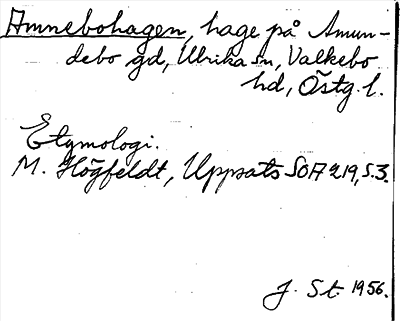 Amnebohagen, hage på Amun-
debo gd, Ulrika sn, Valkebo
hd, Östg. l.
Etymologi.
M. Högfeldt, Uppsats SOA 219, S. 3.
J. St. 1956.